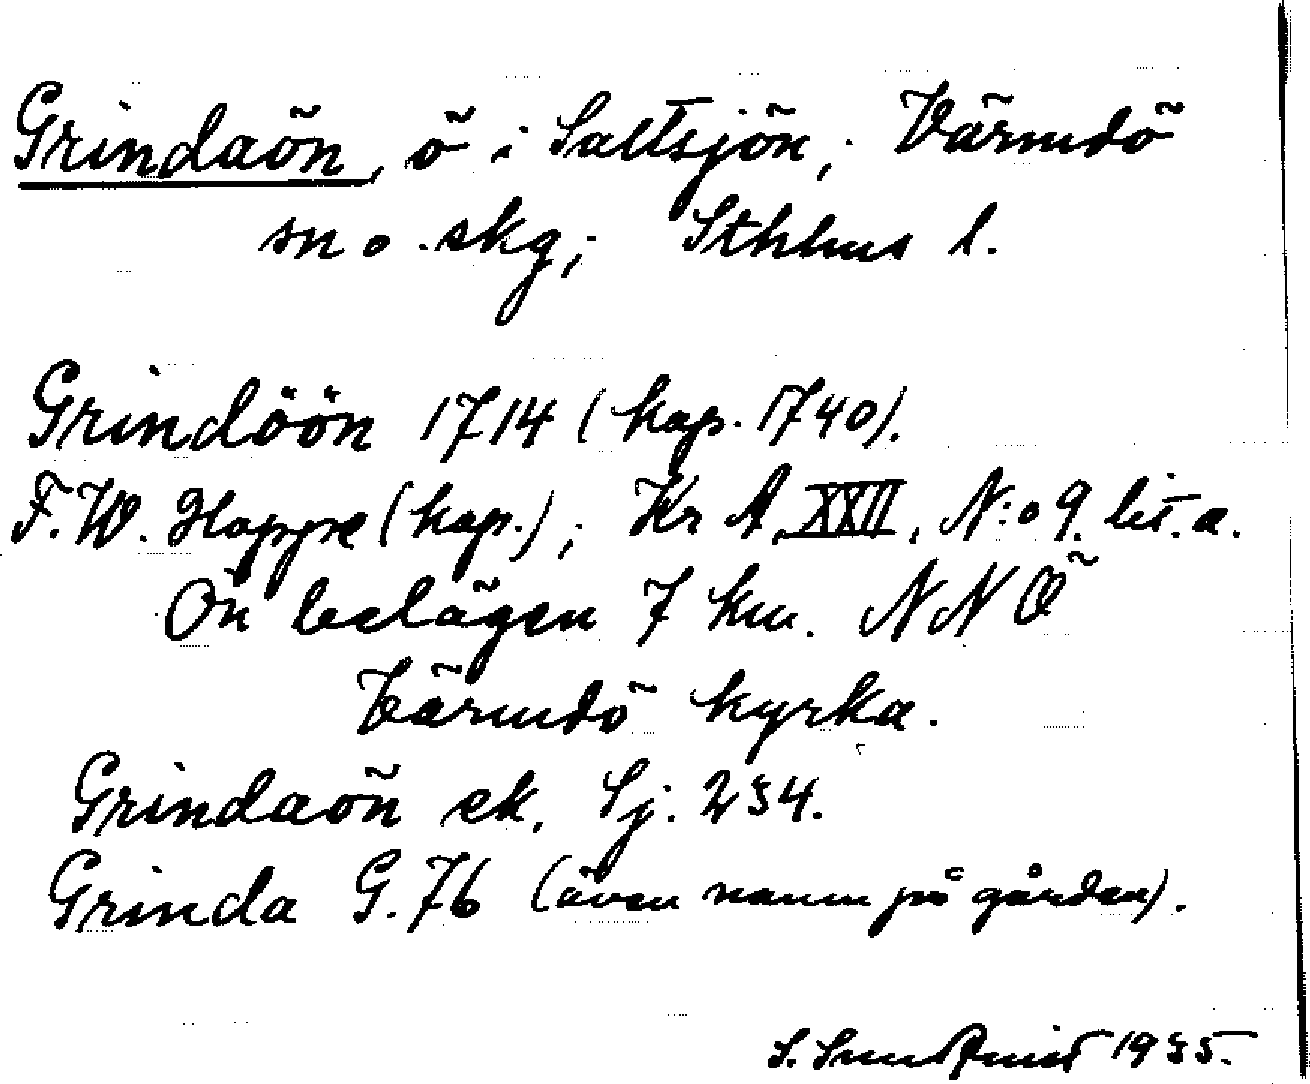 Grindaön, ö i Saltsjön; Värmdö
sn o. skg; Sthlms l.
Grindöön 1714 (kop. 1740).
F.W. Hoppe (kop.); Kr A, XXII, N:o 9. lit. a.
Ön belägen 7 km. NNÖ
Värmdö kyrka.
Grindaön ek. Sj. 234.
Grinda G. 76 (även namn på gården).
S. Sundqvist 1935.